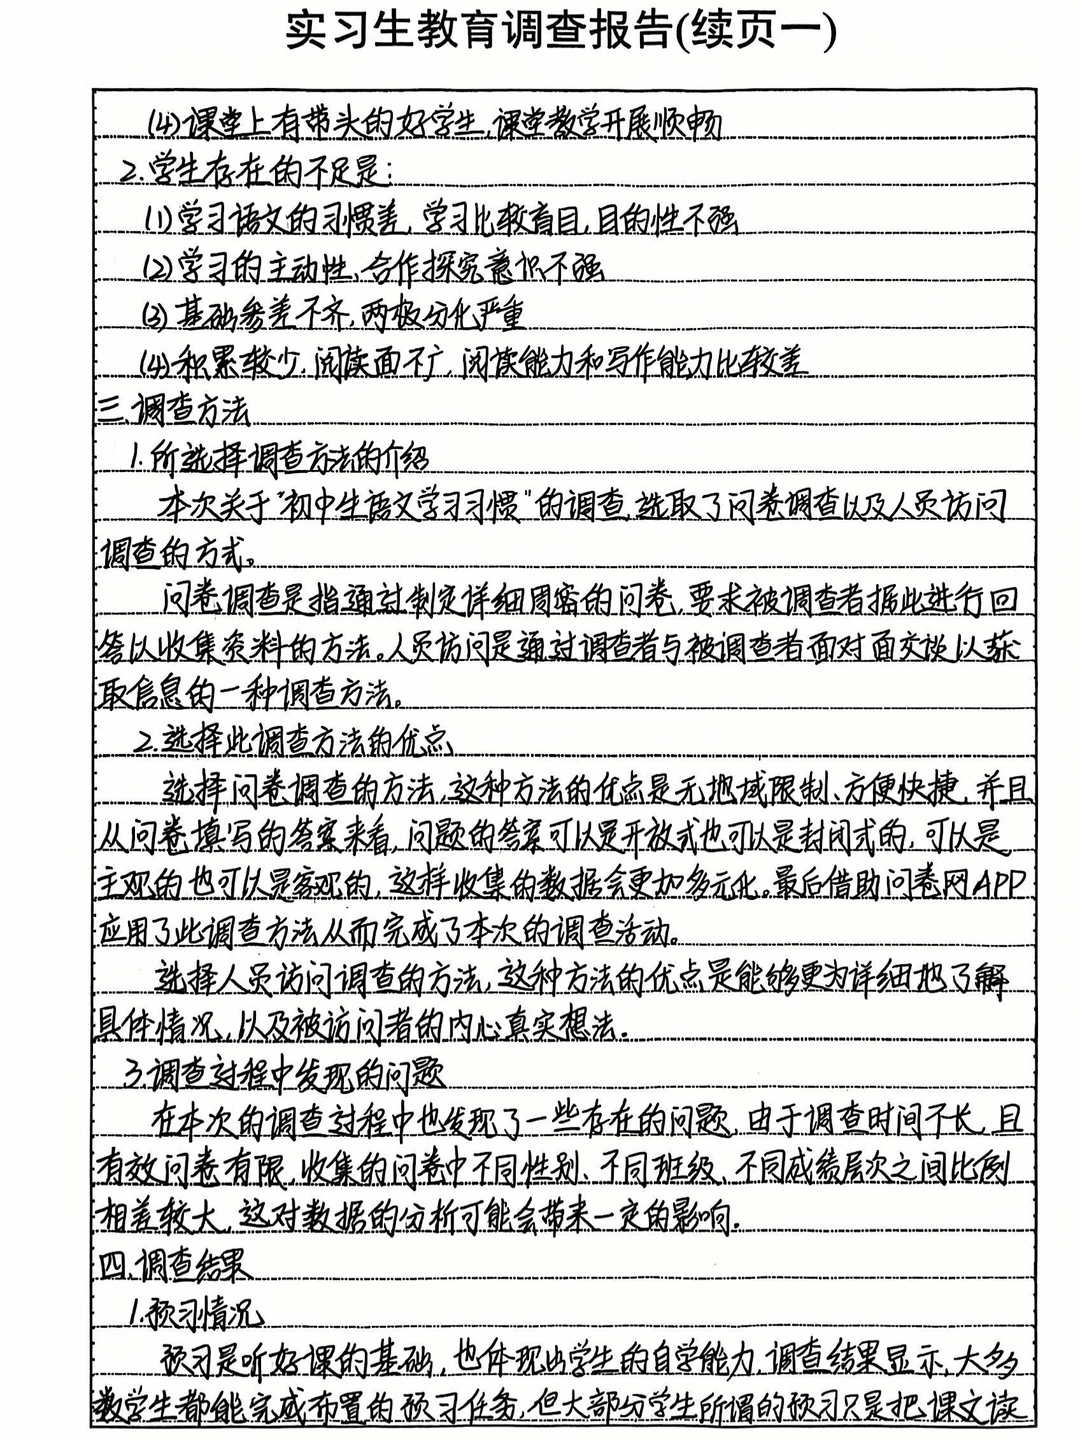 实习生教育调查报告(续页一)
(4)课堂上有带头的好学生,课堂教学开展顺畅
2.学生存在的不足是:
(1)学习语文的习惯差,学习比较盲目,目的性不强
(2)学习的主动性、合作探究意识不强
(3)基础参差不齐,两极分化严重
(4)积累较少,阅读面不广,阅读能力和写作能力比较差
三.调查方法
1.所选择调查方法的介绍
本次关于“初中生语文学习习惯”的调查,选取了问卷调查以及人员访问
调查的方式。
问卷调查是指通过制定详细周密的问卷,要求被调查者据此进行回
答以收集资料的方法。人员访问是通过调查者与被调查者面对面交谈以获
取信息的一种调查方法。
2.选择此调查方法的优点
选择问卷调查的方法,这种方法的优点是无地域限制、方便快捷,并且
从问卷填写的答案来看,问题的答案可以是开放式也可以是封闭式的,可以是
主观的也可以是客观的,这样收集的数据会更加多元化。最后借助问卷网APP
应用了此调查方法从而完成了本次的调查活动。
选择人员访问调查的方法,这种方法的优点是能够更为详细地了解
具体情况,以及被访问者的内心真实想法.
3.调查过程中发现的问题
在本次的调查过程中也发现了一些存在的问题,由于调查时间不长,且
有效问卷有限,收集的问卷中不同性别、不同班级、不同成绩层次之间比例
相差较大,这对数据的分析可能会带来一定的影响.
四.调查结果
1.预习情况
预习是听好课的基础,也体现出学生的自学能力,调查结果显示,大多
数学生都能完成布置的预习任务,但大部分学生所谓的预习只是把课文读